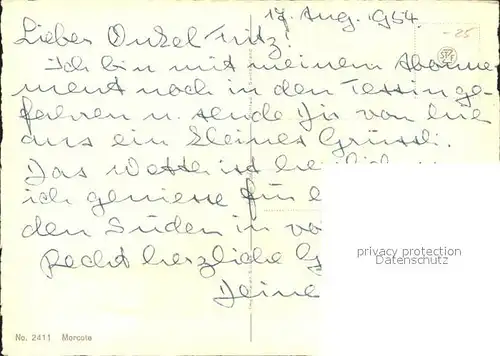 17. Aug. 1954.
-25
Lieber Onkel Fritz!
Ich bin mit meinem Abonne-
ment noch in den Tessin ge-
fahren u. sende Dir von hier
aus ein kleines Grüssli.
Das Wetter ist
ich geniesse für
den Süden in
Recht herzliche G
Deine
privacy protection
Datenschutz
No. 2411 Morcote